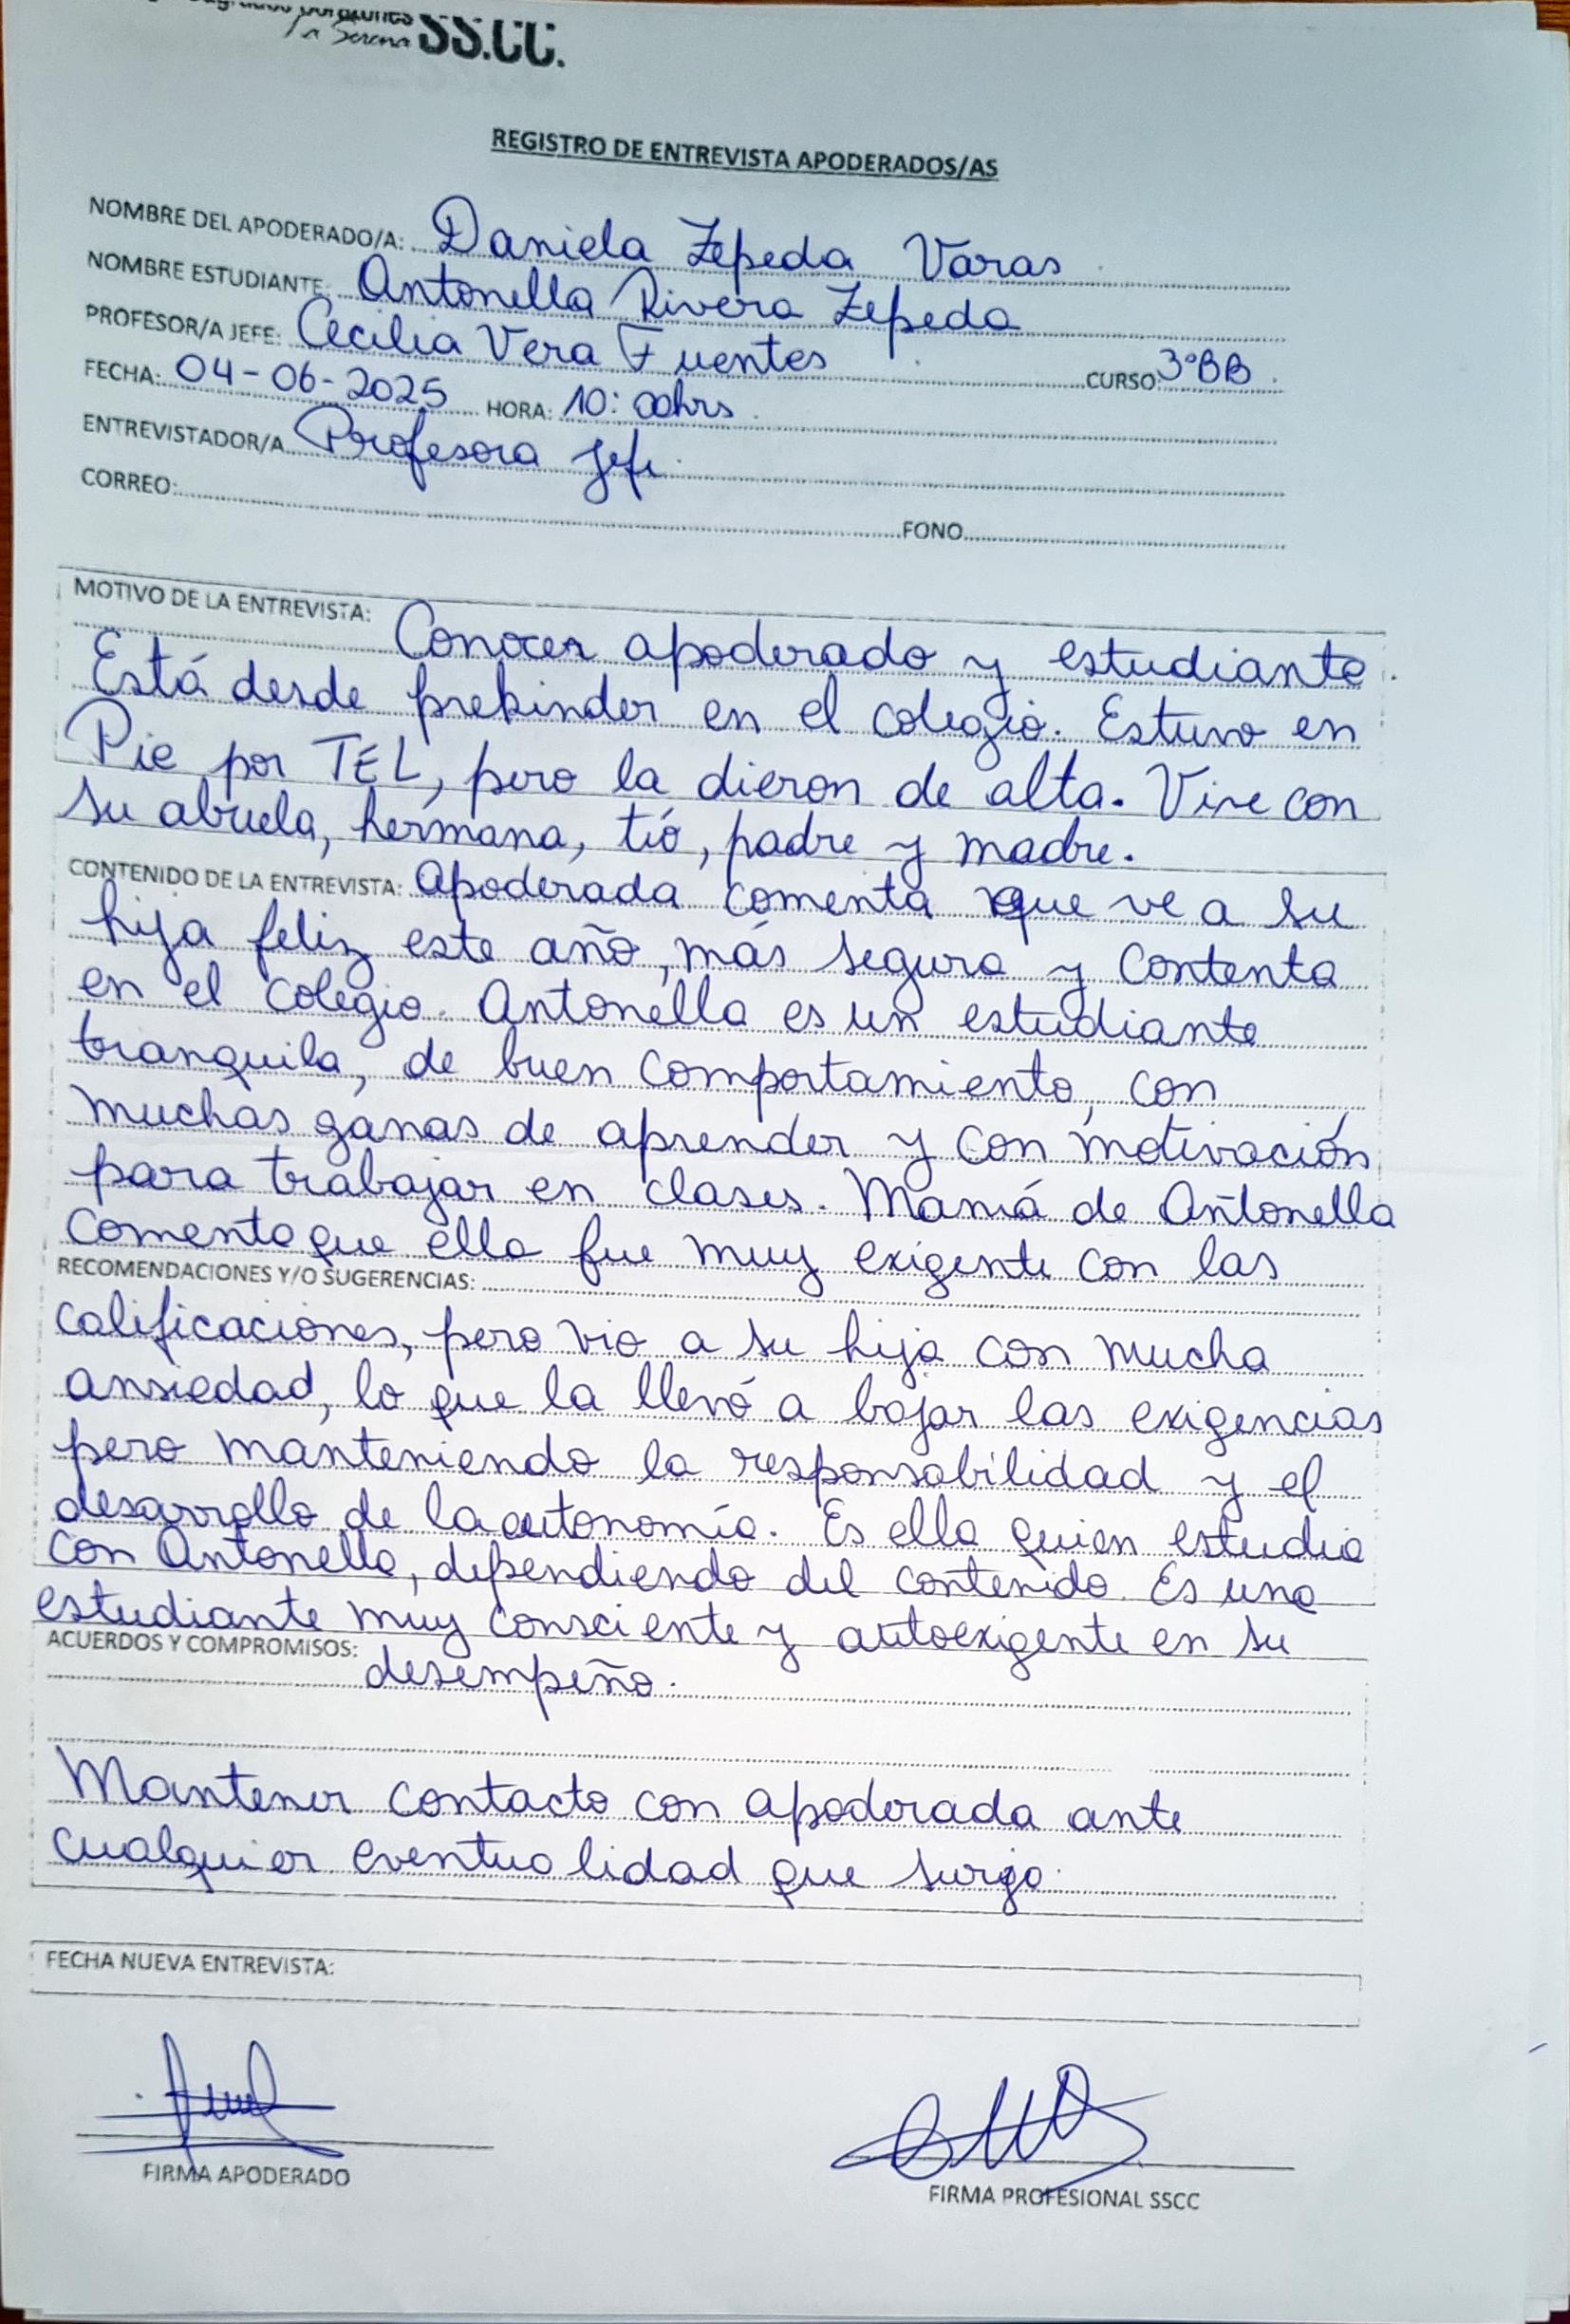 Corazones
La Serena SS.CC.
REGISTRO DE ENTREVISTA APODERADOS/AS
NOMBRE DEL APODERADO/A: Daniela Zepeda Varas
NOMBRE ESTUDIANTE: Antonella Rivera Zepeda
PROFESOR/A JEFE: Cecilia Vera Fuentes CURSO: 3°BB
FECHA: 04-06-2025 HORA: 10:00hrs
ENTREVISTADOR/A Profesora Jefe.
CORREO: FONO
MOTIVO DE LA ENTREVISTA: Conocer apoderado y estudiante.
Está desde prekinder en el colegio. Estuvo en
Pie por TEL, pero la dieron de alta. Vive con
su abuela, hermana, tío, padre y madre.
CONTENIDO DE LA ENTREVISTA: Apoderada comenta que ve a su
hija feliz este año, más segura y contenta
en el colegio. Antonella es un estudiante
tranquila, de buen comportamiento, con
muchas ganas de aprender y con motivación
para trabajar en clases. Mamá de Antonella
comenta que ella fue muy exigente con las
RECOMENDACIONES Y/O SUGERENCIAS:
calificaciones, pero vio a su hija con mucha
ansiedad, lo que la llevó a bajar las exigencias
pero manteniendo la responsabilidad y el
desarrollo de la autonomía. Es ella quien estudia
con Antonella, dependiendo del contenido. Es una
estudiante muy consciente y autoexigente en su
ACUERDOS Y COMPROMISOS: desempeño.
Mantener contacto con apoderada ante
cualquier eventualidad que surja.
FECHA NUEVA ENTREVISTA:
FIRMA APODERADO
FIRMA PROFESIONAL SSCC